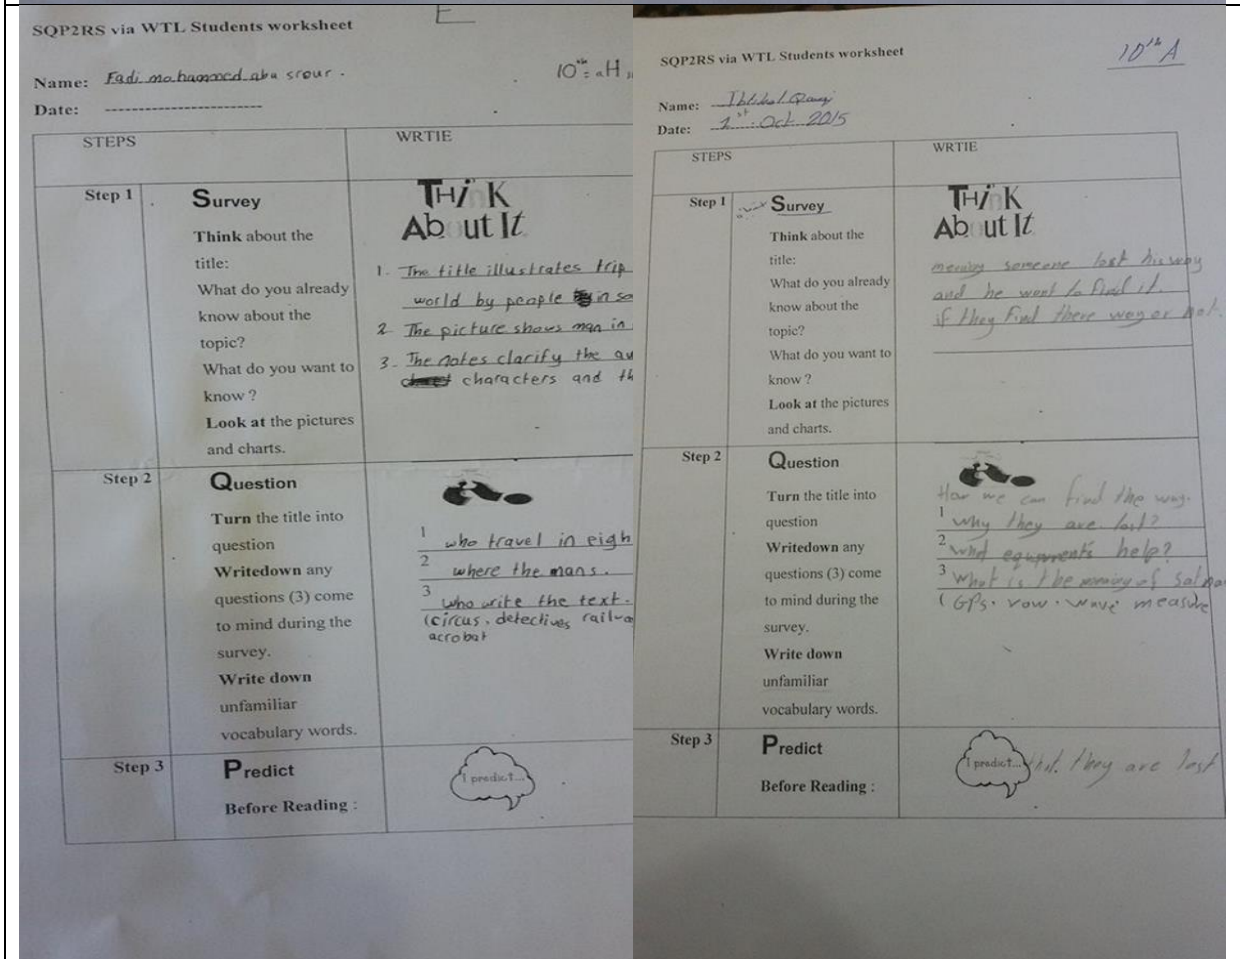 E
SQP2RS via WTL Students worksheet
10th H
Name: Fadi mohammed abu srour.
Date: ----------------------
STEPS
WRTIE
Step 1
Survey
Think about the
title:
What do you already
know about the
topic?
What do you want to
know ?
Look at the pictures
and charts.
THiNK
About It
1. The title illustrates trip
world by people in so
2 The picture shows man in
3- The notes clarify the au
characters and th
Step 2
Question
Turn the title into
question
Writedown any
questions (3) come
to mind during the
survey.
Write down
unfamiliar
vocabulary words.
1 who travel in eigh
2 where the mans.
3 who write the text.
(circus. detectives railwa
acrobat
Step 3
Predict
Before Reading :
I predict...
SQP2RS via WTL Students worksheet
10th A
Name:
Date: 1st Oct 2015
STEPS
WRTIE
Step 1
Survey
Think about the
title:
What do you already
know about the
topic?
What do you want to
know ?
Look at the pictures
and charts.
THiNK
About It
someone lost his way
and he want to find it.
if they find there way or not.
Step 2
Question
Turn the title into
question
Writedown any
questions (3) come
to mind during the
survey.
Write down
unfamiliar
vocabulary words.
How we can find the way.
1 why they are lost?
2 what equpments help?
3 What is the of
( GPS. row. wave measure
Step 3
Predict
Before Reading :
I predict... that they are lost